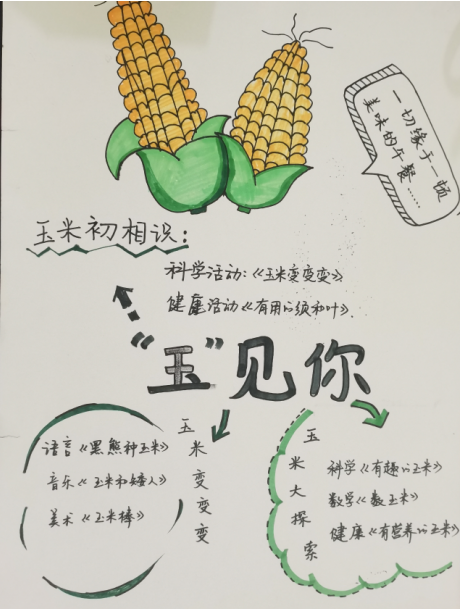 一切缘于一顿
美味的午餐……
玉米初相识：
科学活动：《玉米变变变》
健康活动《有用的须和叶》
“玉”见你
玉米变变变
语言《黑熊种玉米》
音乐《玉米和矮人》
美术《玉米棒》
玉米大探索
科学《有趣的玉米》
数学《数玉米》
健康《有营养的玉米》